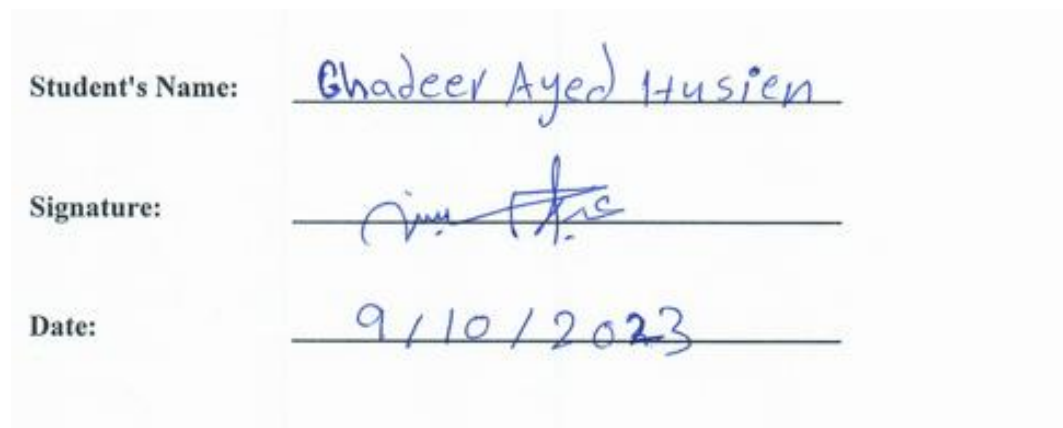 Student's Name: Ghadeer Ayed Husien
Signature:
Date: 9/10/2023